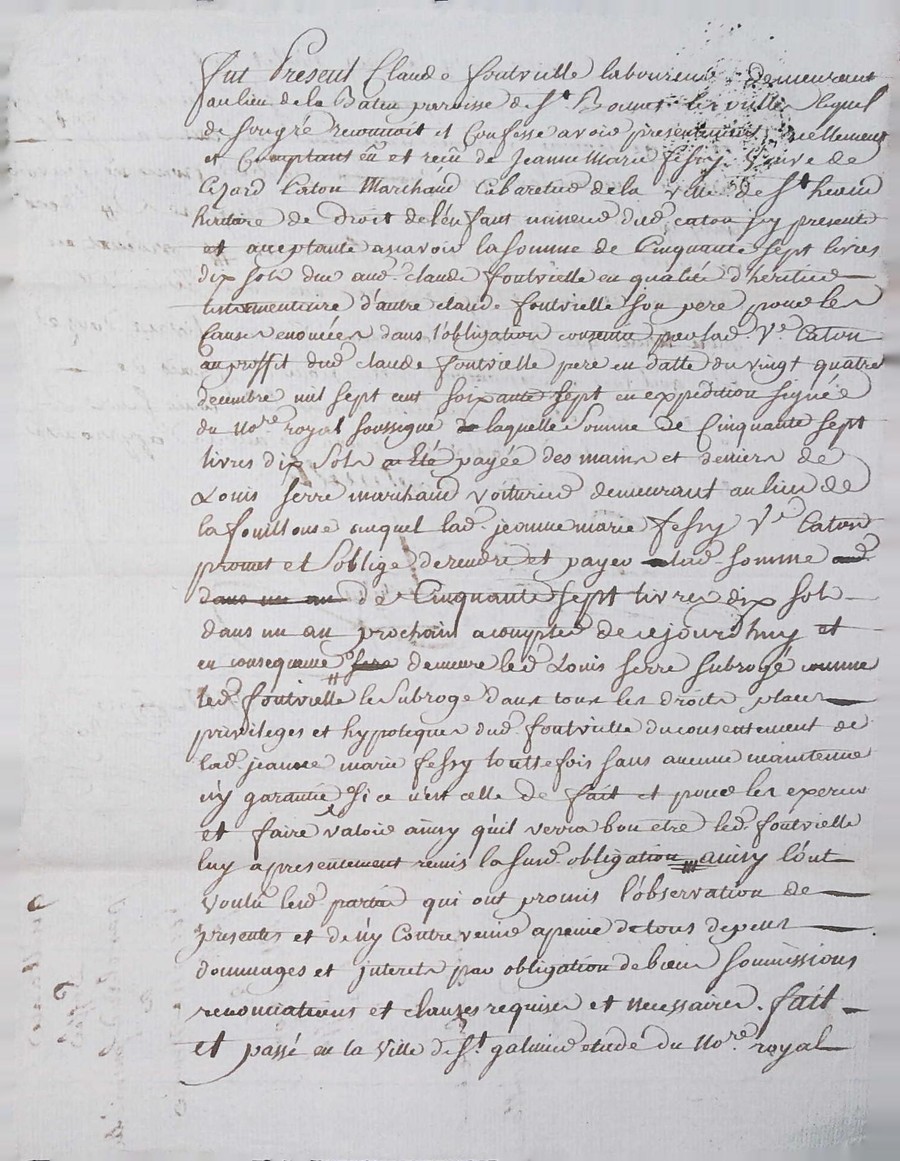 fut Present Claude fontvieille laboureur demeurant
au lieu de la Batie paroisse de St. Bonnet les oulles lequel
de son gré reconnoit et Confesse avoir presentement reellement
et Comptant eû et reçû de Jeanne Marie fessy veuve de
Caton Marchand Cabaretier de la ville de St.
heritiere de droit de l'enfant mineur dud. caton icy presente
et acceptante asavoir la somme de Cinquante sept livres
dix sols due aud. claude fontvielle en qualité d'héritier
testamentaire d'autre claude fontvielle son pere pour les
Causes enoncées dans l'obligation consentie par lad. Ve. Caton
au proffit dud. claude fontvielle pere en datte du vingt quatre
decembre mil sept cent soixante sept en expedition signée
du Nore. royal soussigné laquelle somme de Cinquante sept
livres dix sols a été payée des mains et deniers de
Louis serre marchand voiturier demeurant au lieu de
la fouillouse auquel lad. jeanne marie fessy Ve. Caton
promet et s'oblige de rendre et payer lad. somme aud.
dans un an de Cinquante sept livres dix sols
dans un an prochain a compter de cejourdhuy et
en consequence demeure led. Louis serre subrogé comme
led. fontvielle le subroge dans tous les droits places
privileges et hypoteques dud. fontvielle du consentement de
lad. jeanne marie fessy touttefois sans aucune maintenue
n'y garantie si ce n'est celle de fait et pour les exercer
et faire valoir ainsy qu'il verra bon etre led. fontvielle
luy a presentement remis la susd. obligation ainsy l'ont
voulu lesd. parties qui ont promis l'observation de
presentes et de n'y Contrevenir a peine de tous depens
dommages et interets par obligation de biens soumissions
renonciations et clauses requises et necessaires. fait
et passé en la ville de St. galmier etude du Nore. royal